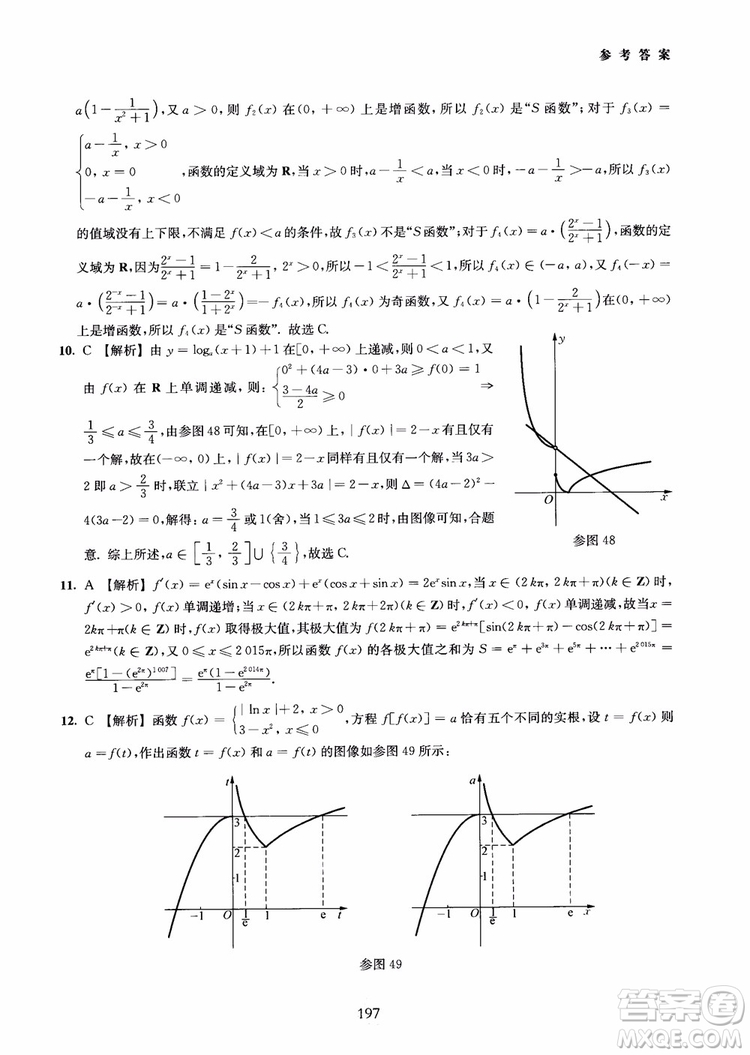 参考答案
a(1-1/(x²+1)),又 a>0,则 f₂(x)在(0,+∞)上是增函数,所以 f₂(x)是“S 函数”;对于 f₃(x)=
{a-1/x, x>0
0, x=0 ,函数的定义域为 R,当 x>0时,a-1/x<a,当 x<0时,-a-1/x>-a,所以 f₃(x)
-a-1/x, x<0
的值域没有上下限,不满足 f(x)<a 的条件,故 f₃(x)不是“S 函数”;对于 f₄(x)=a·((2ˣ-1)/(2ˣ+1)),函数的定
义域为 R,因为(2ˣ-1)/(2ˣ+1)=1-2/(2ˣ+1),2ˣ>0,所以-1<(2ˣ-1)/(2ˣ+1)<1,所以 f₄(x)∈(-a,a),所以 f₄(-x)=
a·((2⁻ˣ-1)/(2⁻ˣ+1))=a·((1-2ˣ)/(1+2ˣ))=-f₄(x),所以 f₄(x)为奇函数,又 f₄(x)=a·(1-2/(2ˣ+1))在(0,+∞)
上是增函数,所以 f₄(x)是“S 函数”. 故选 C.
10. C 【解析】由 y=logₐ(x+1)+1在[0,+∞)上递减,则 0<a<1,又
由 f(x)在 R 上单调递减,则:{0²+(4a-3)·0+3a≥f(0)=1
(3-4a)/2≥0 ⇒
1/3≤a≤3/4,由参图 48 可知,在[0,+∞)上,|f(x)|=2-x有且仅有
一个解,故在(-∞,0)上,|f(x)|=2-x同样有且仅有一个解,当 3a>
2即 a>2/3时,联立|x²+(4a-3)x+3a|=2-x,则 Δ=(4a-2)²-
4(3a-2)=0,解得:a=3/4或1(舍),当1≤3a≤2时,由图像可知,合题
意. 综上所述,a∈[1/3,2/3]∪{3/4},故选 C.
y
O
x
参图 48
11. A 【解析】f′(x)=eˣ(sin x-cos x)+eˣ(cos x+sin x)=2eˣsin x,当 x∈(2kπ,2kπ+π)(k∈Z)时,
f′(x)>0,f(x)单调递增;当 x∈(2kπ+π,2kπ+2π)(k∈Z)时,f′(x)<0,f(x)单调递减,故当x=
2kπ+π(k∈Z)时,f(x)取得极大值,其极大值为 f(2kπ+π)=e²ᵏᵖ⁺ᵖ[sin(2kπ+π)-cos(2kπ+π)]=
e^(2kπ+π),又 0≤x≤2 015π,所以函数 f(x)的各极大值之和为 S=e^π+e^(3π)+e^(5π)+…+e^(2 015π)=
e^π[1-(e^(2π))^1007]/(1-e^(2π))=e^π(1-e^(2 014π))/(1-e^(2π)).
12. C 【解析】函数 f(x)={|ln x|+2, x>0
3-x², x≤0 ,方程 f[f(x)]=a 恰有五个不同的实根,设 t=f(x)则
a=f(t),作出函数 t=f(x)和 a=f(t)的图像如参图 49 所示:
t
3
2
1
-1 O 1/e 1 e t
a
3
2
1
-1 O 1/e 1 e x
参图 49
197
答案圈
MXQE.COM